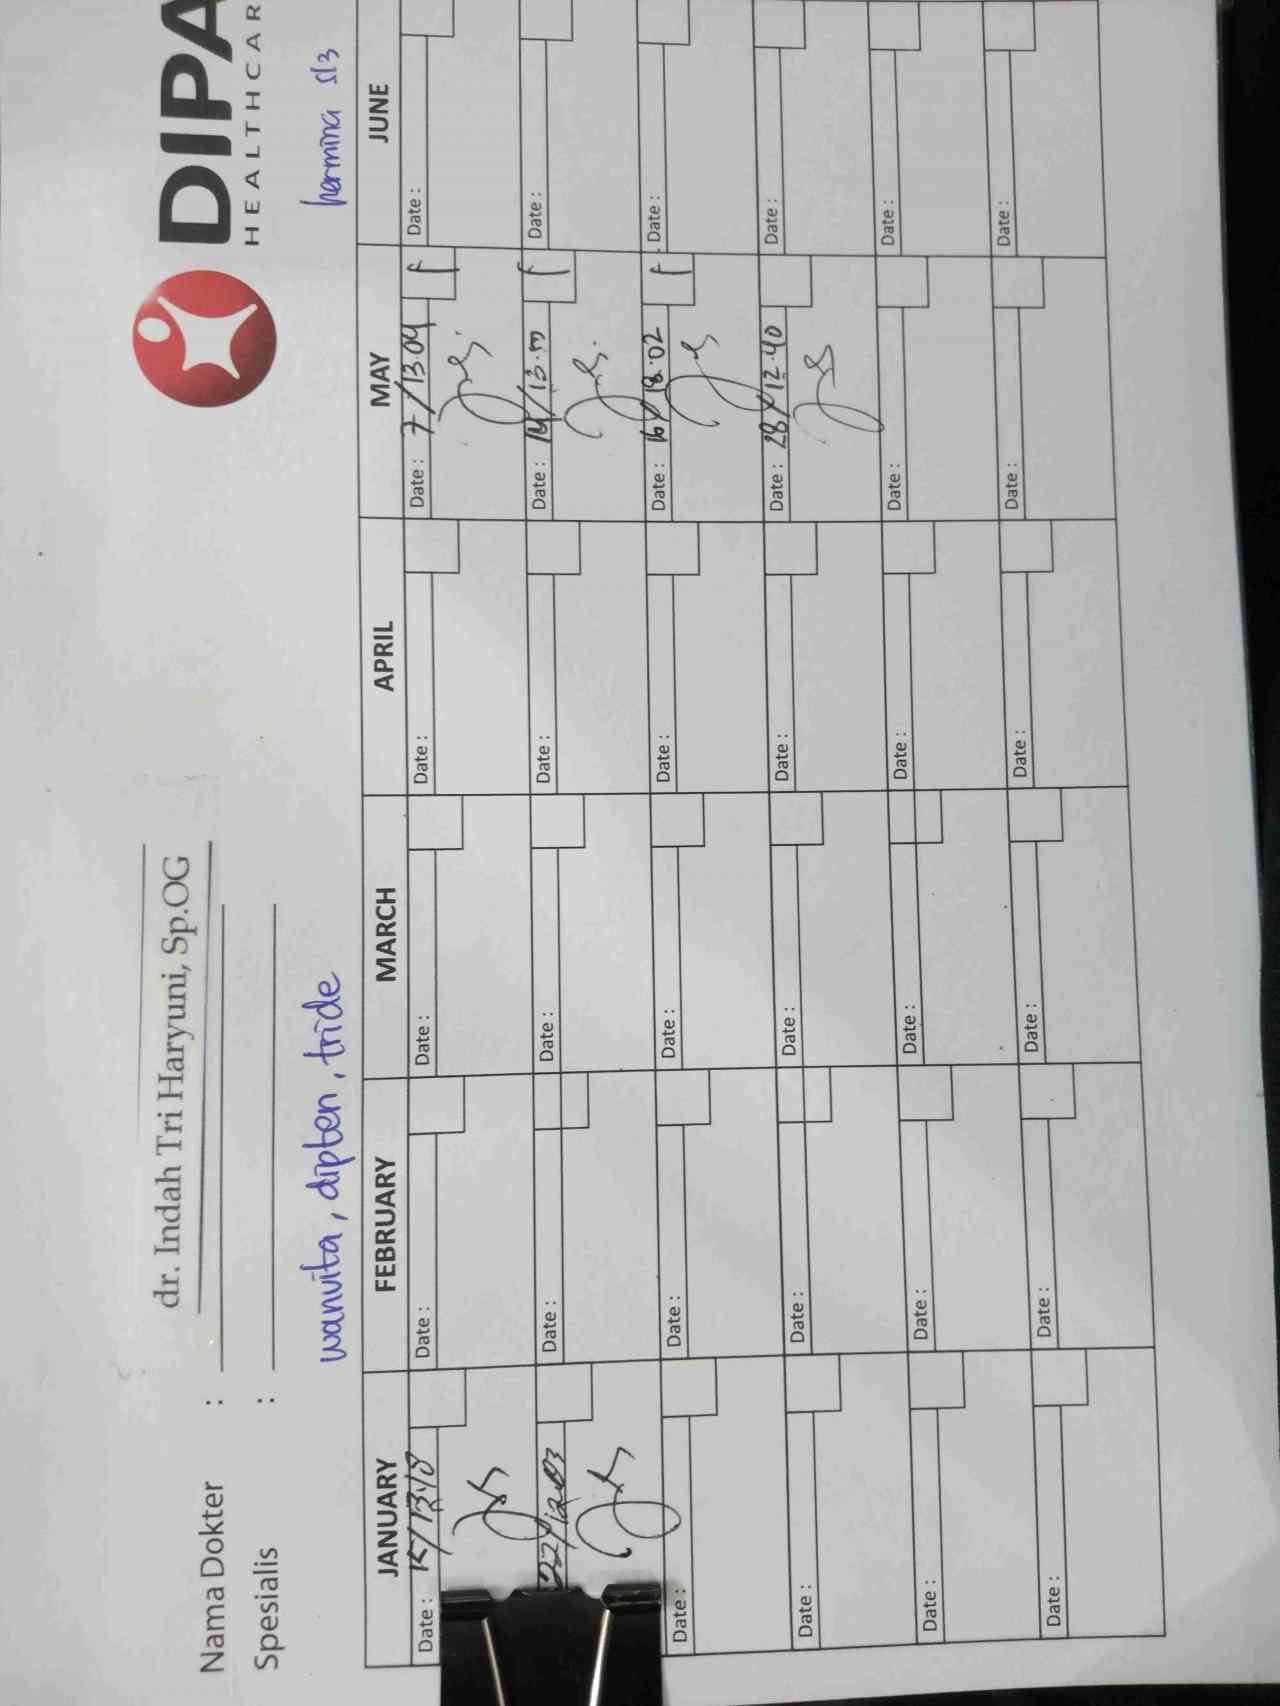 DIPA
HEALTHCAR
dr. Indah Tri Haryuni, Sp.OG
Nama Dokter :
Spesialis :
wanvita, dipten, tride
hermina s/3
JANUARY FEBRUARY MARCH APRIL MAY JUNE
Date : 15/13.18 Date : Date : Date : Date : 7/13.09 Date :
22/12.03 Date : Date : Date : Date : 14/13. Date :
Date : Date : Date : Date : Date : 16/18.02 Date :
Date : Date : Date : Date : Date : 28/12.40 Date :
Date : Date : Date : Date : Date : Date :
Date : Date : Date : Date : Date : Date :